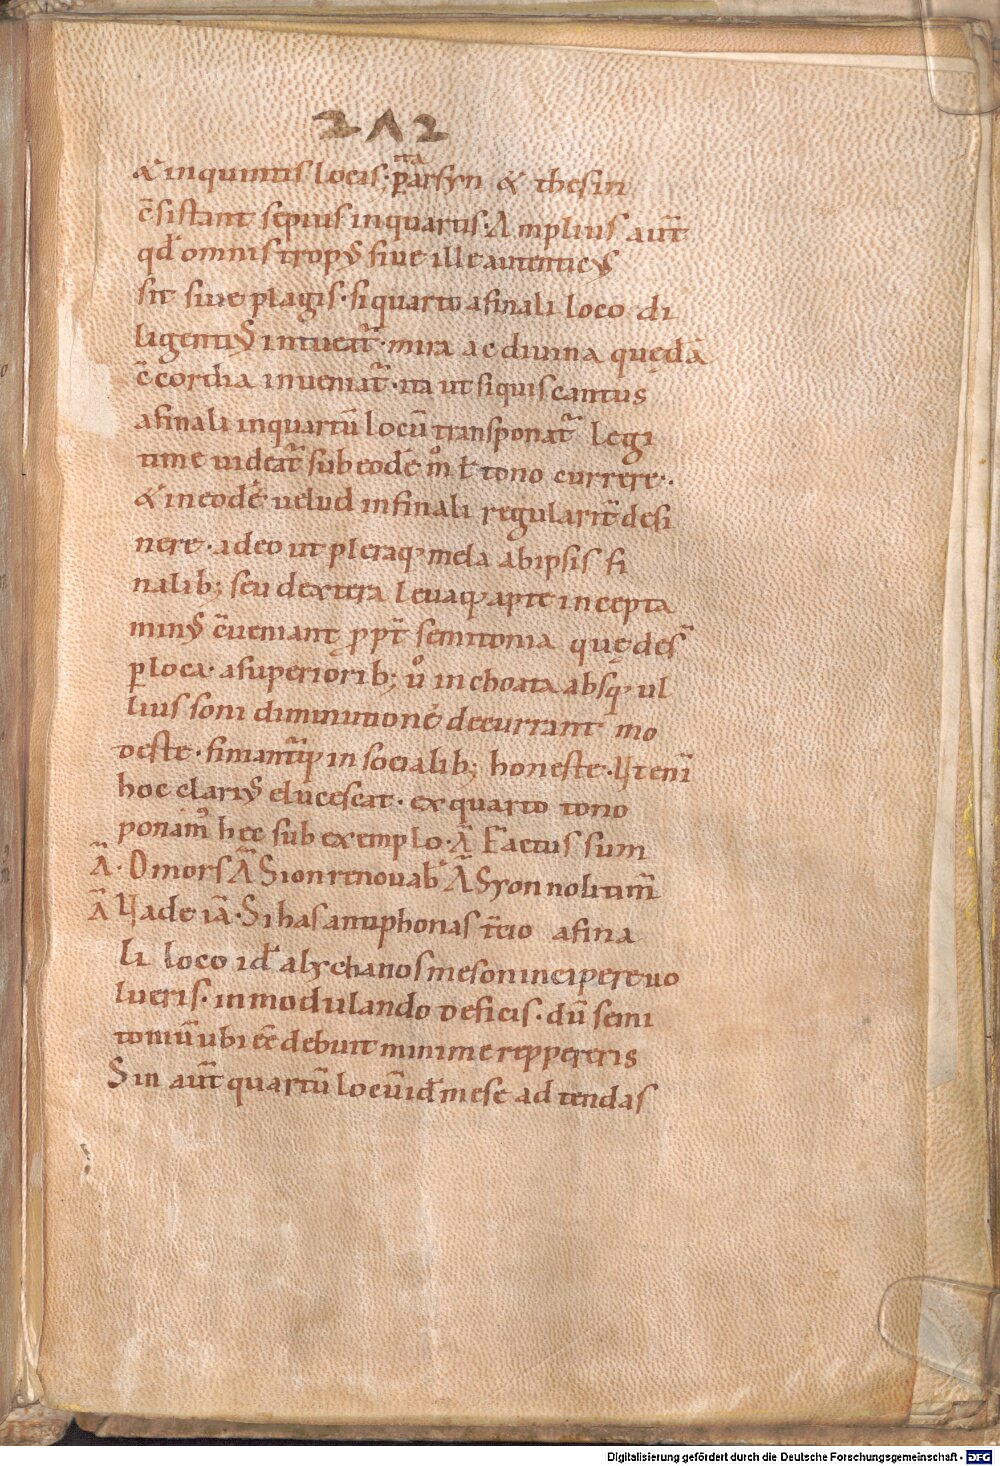 212
ita
& inquintis locis; p̄ arsyn & thesin
c̄sistant sepius inquartis· Amplius aut̄
qđ omnis tropꝰ siue ille autenticꝰ
sit siue plagis· si quarto afinali loco di
ligentiꝰ intueat̄· mira ac diuina quędā
c̄cordia inueniat̄· ita ut siquis cantus
afinali inquartū locū transponat̄ legi
time uideat̄ sub eodē m̊ ł tono currere·
& in eodē uelud infinali regularit̄ desi
nere· adeo ut pleraq; mela abipsis fi
nalib; seu dextera leuaq; apte incepta
minꝰ c̄ueniant ꝓpt̄ semitonia quę des̄
ꝑ loca· asuperiorib; ů inchoata absq; ul
lius soni diminutione decurrant mo
deste· finiantq; in socialib; honeste· Ut eni̅
hoc clariꝰ elucescat· ex quarto tono
ponam̊ hec sub exemplo· Ā Factus sum
Ā· O mors Ā Sion renouab̄ Ā Syon noli tim̄
Ā Uade iā· Si has antiphonas t̄cio afina
li loco id̄ a lychanos meson incipere uo
lueris· in modulando deficis· dū semi
toniū ubi eē debuit minime reppereris
Sin aut̄ quartū locū id̄ mese adtendas
Digitalisierung gefördert durch die Deutsche Forschungsgemeinschaft - DFG